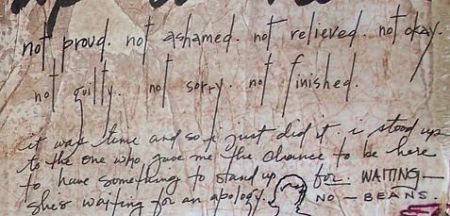 not proud. not ashamed. not relieved. not okay.
not guilty. not sorry. not finished.
it was time and so i just did it. i stood up
to the one who gave me the chance to be here
to have something to stand up for. WAITING—
she's waiting for an apology. NO - BEANS.